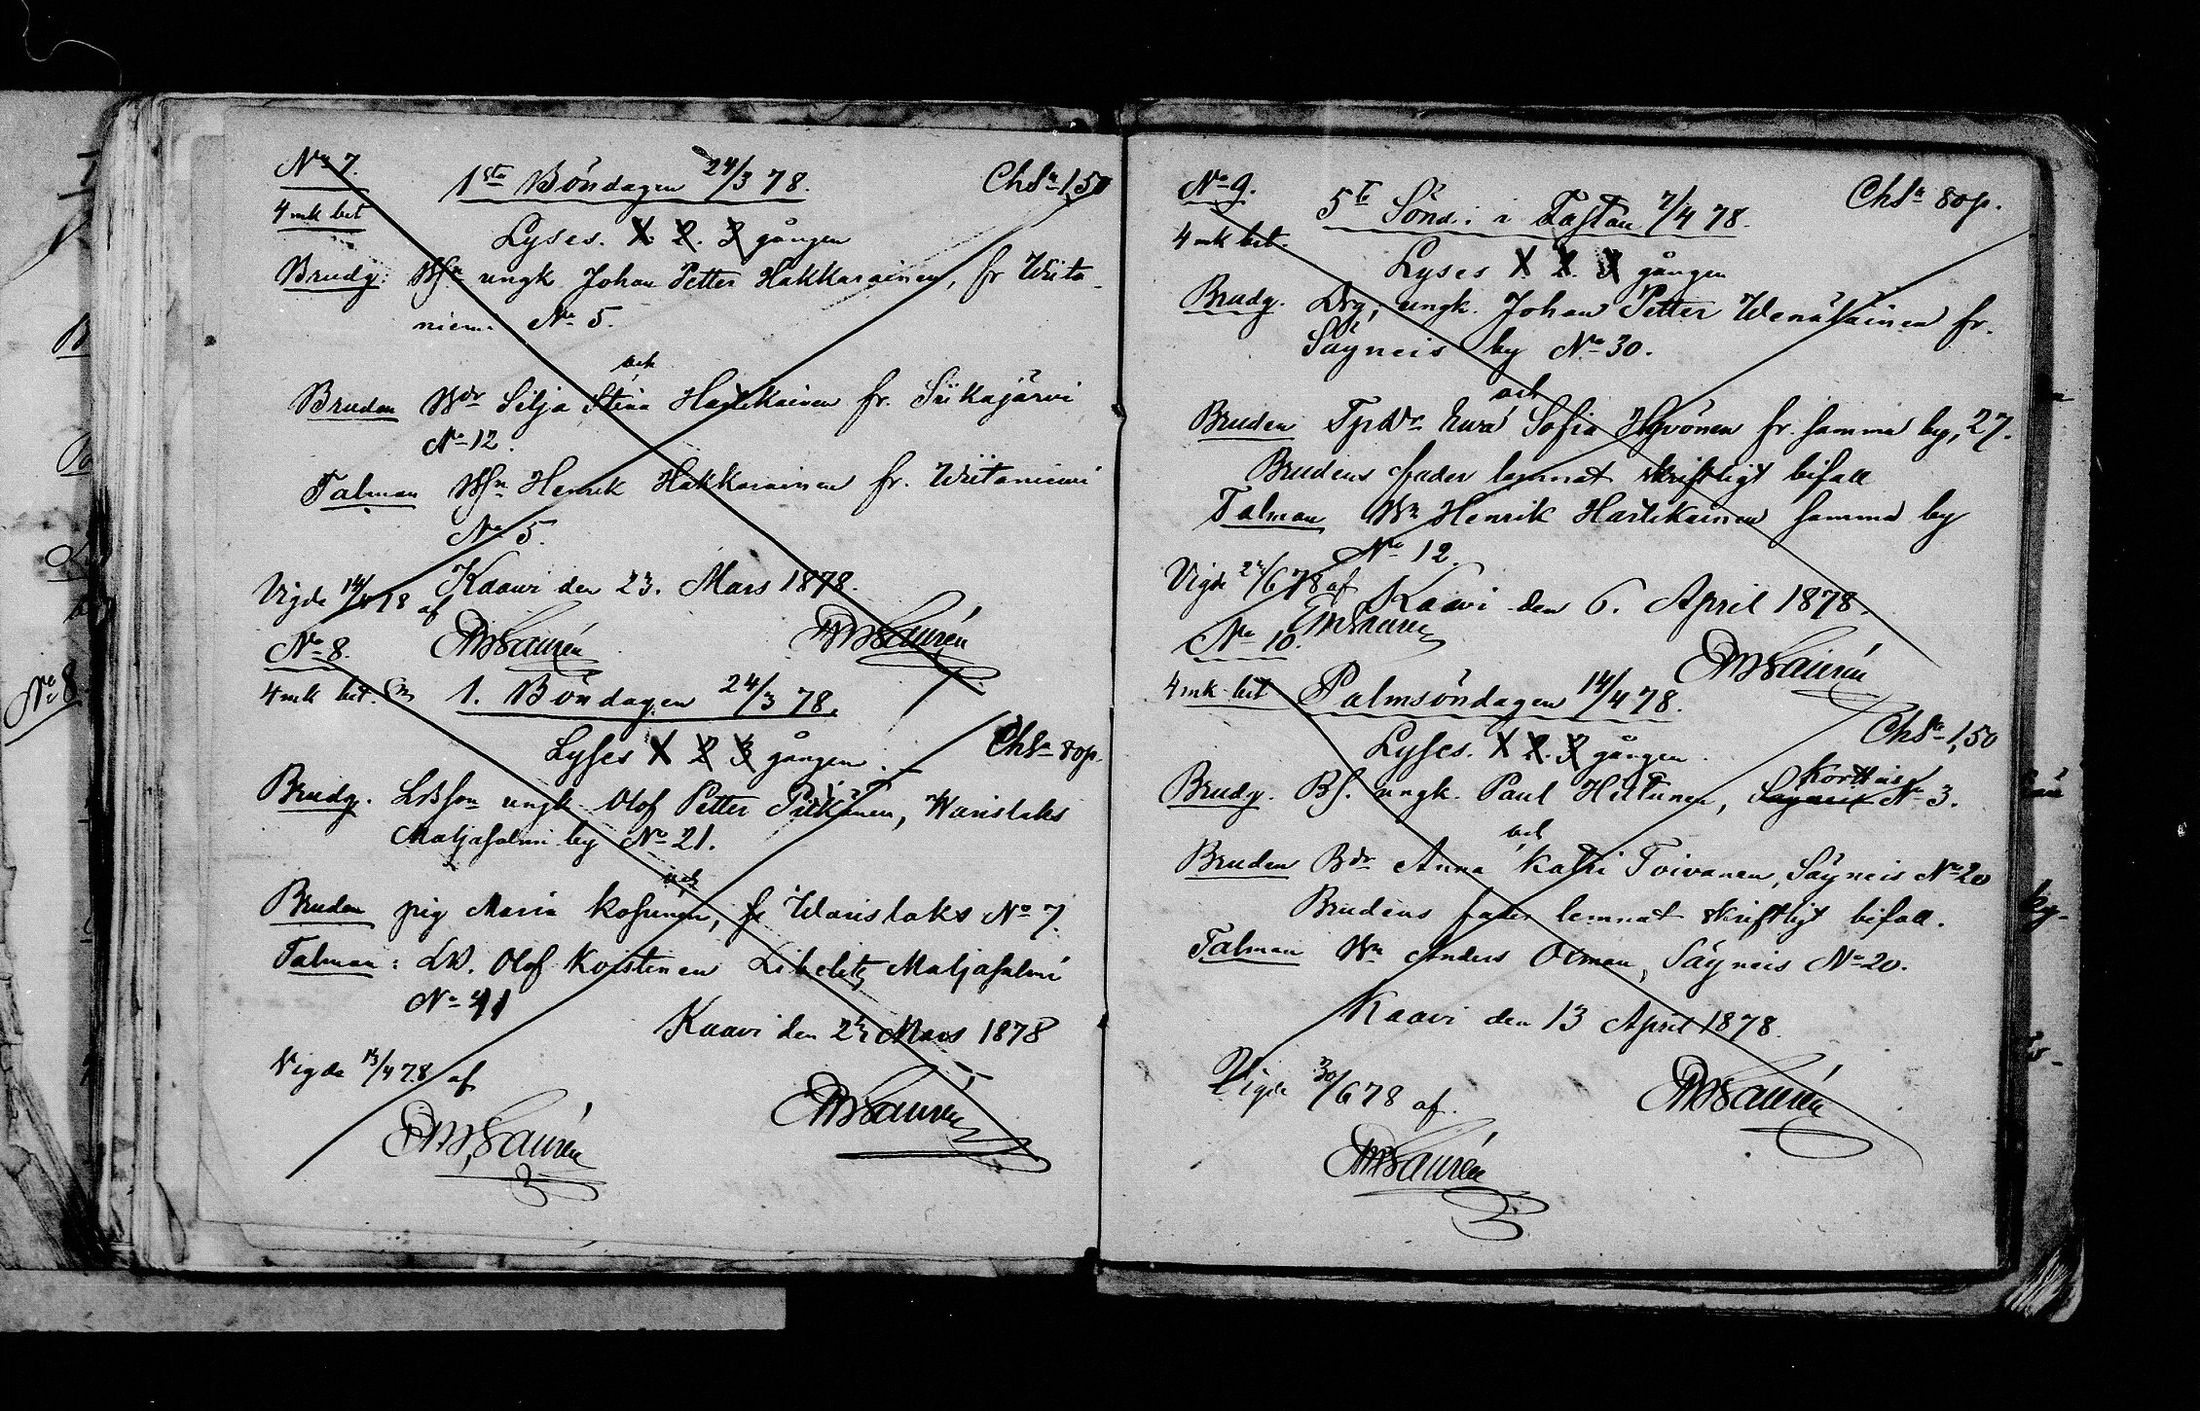 No 7.
1sta Böndagen 24/3 78.
Chsn 1,50
4 mk bet
Lyses. 1. 2. 3 gången
Brudg: Wsn ungk. Johan Petter Hakkarainen, fr Wiita-
niemi No 5.
och
Bruden Wdr Silja Stina Hartikainen fr. Siikajärvi
No 12.
Talman Wsn Henrik Hakkarainen fr. Wiitaniemi
No 5.
Kaavi den 23. Mars 1878.
Vigde 14/4 78 af
EMSaurén
EMSaurén
No 8.
4 mk bet.
1. Böndagen 24/3 78.
Lyses 1 2 3 gången
Chsn 80p.
Brudg. LBson ungk. Olof Petter Piikänen, Warislaks
Maljasalmi by No 21.
och
Bruden pig Maria Kosunen, fr Warislaks No 7.
Talman: LW. Olof Koistinen Libelitz Maljasalmi
No 41
Kaavi den 23 Mars 1878
Vigde 13/4 78 af
EMSaurén
EMSaurén
No 9.
5te Sönd. i Fastan 7/4 78.
Chsn 80p.
4 mk bet.
Lyses 1 2. 3 gången
Brudg. Drg, ungk. Johan Petter Wenäläinen fr.
Säyneis by No 30.
och
Bruden Eva Sofia Hyvönen fr. samma by, 27.
Brudens fader lemnat skriftligt bifall
Talman Wn Henrik Hartikainen samma by
No 12.
Vigde 2/6 78 af
Kaavi den 6. April 1878.
EMSaurén
EMSaurén
No 10.
4 mk bet
Palmsöndagen 14/4 78.
Chsn 1,50
Lyses. 1 2. 3 gången.
Kortteis
Brudg. Bs. ungk. Paul Hiltunen, Säyneis No 3.
och
Bruden Bdr Anna Katri Toivanen, Säyneis No 20
Brudens fader lemnat skriftligt bifall.
Talman Wn Anders Oiman, Säyneis No 20.
Kaavi den 13 April 1878.
Vigde 30/6 78 af.
EMSaurén
EMSaurén
No 8